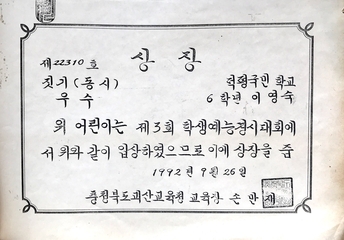 상장
제22310호
짓기(동시) 덕평국민학교
우수 6학년 이영숙
위 어린이는 제3회 학생예능경시대회에
서 위와 같이 입상하였으므로 이에 상장을 줌
1992년 9월 26일
충청북도괴산교육청 교육장 손반재